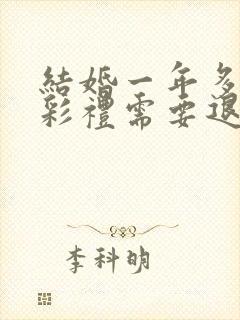 結婚一年多
彩禮需要退
李科明